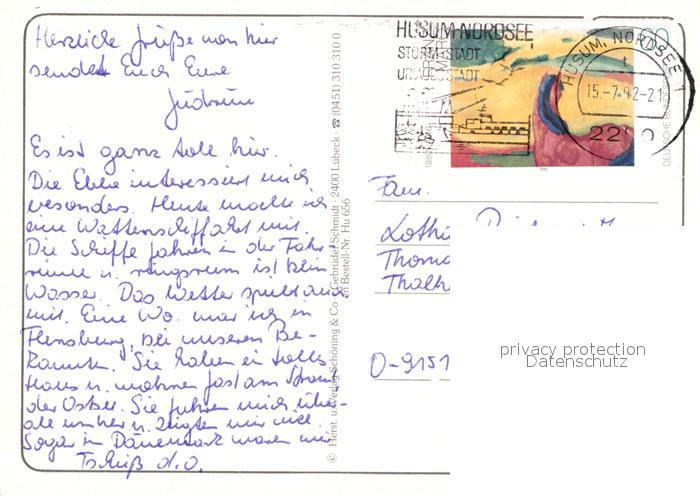 Herzliche Grüße von hier
sendet Euch Eure
Gudrun
Es ist ganz tolle hier.
Die Ebbe interessiert mich
besonders. Heute machte ich
eine Wattenschiffahrt mit.
Die Schiffe fahren in der Fahr-
rinne u. ringsrum ist kein
Wasser. Das Wetter spielt auch
mit. Eine Wo. war ich in
Flensburg, bei unseren Be-
kannten. Sie haben ein tolles
Haus u. wohnen fast am Strand
der Ostsee. Sie fuhren mich über-
all umher u. zeigten mir viel.
Sogar in Dänemark waren wir
Tschüß d. O.
© Herst. u. Verlag Schöning & Co + Gebrüder Schmidt · 2400 Lübeck · ☎ (0451) 310 310 0
Bestell-Nr. Hu 656
HUSUM-NORDSEE
STORM-STADT
URLAUBSSTADT
HUSUM, NORDSEE 1
15.-7.92-21
2250
60
DEUTSCHE BUNDESPOST
Fam.
Thomas
O-9151
privacy protection
Datenschutz